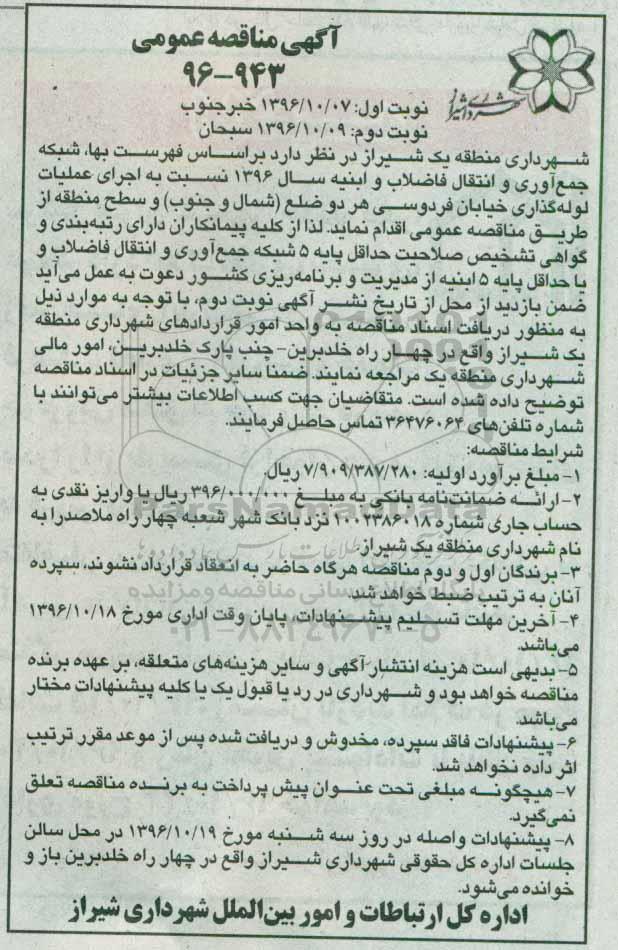 آگهی مناقصه عمومی
۹۶-۹۴۳
شهرداری شیراز
نوبت اول: ۱۳۹۶/۱۰/۰۷ خبرجنوب
نوبت دوم: ۱۳۹۶/۱۰/۰۹ سبحان
شهرداری منطقه یک شیراز در نظر دارد براساس فهرست بها، شبکه
جمع‌آوری و انتقال فاضلاب و ابنیه سال ۱۳۹۶ نسبت به اجرای عملیات
لوله‌گذاری خیابان فردوسی هر دو ضلع (شمال و جنوب) و سطح منطقه از
طریق مناقصه عمومی اقدام نماید. لذا از کلیه پیمانکاران دارای رتبه‌بندی و
گواهی تشخیص صلاحیت حداقل پایه ۵ شبکه جمع‌آوری و انتقال فاضلاب و
یا حداقل پایه ۵ ابنیه از مدیریت و برنامه‌ریزی کشور دعوت به عمل می‌آید
ضمن بازدید از محل از تاریخ نشر آگهی نوبت دوم، با توجه به موارد ذیل
به منظور دریافت اسناد مناقصه به واحد امور قراردادهای شهرداری منطقه
یک شیراز واقع در چهار راه خلدبرین- جنب پارک خلدبرین، امور مالی
شهرداری منطقه یک مراجعه نمایند. ضمنا سایر جزئیات در اسناد مناقصه
توضیح داده شده است. متقاضیان جهت کسب اطلاعات بیشتر می‌توانند با
شماره تلفن‌های ۳۶۴۷۶۰۶۴ تماس حاصل فرمایند.
شرایط مناقصه:
۱- مبلغ برآورد اولیه: ۷/۹۰۹/۳۸۷/۲۸۰ ریال
۲- ارائه ضمانت‌نامه بانکی به مبلغ ۳۹۶/۰۰۰/۰۰۰ ریال یا واریز نقدی به
حساب جاری شماره ۱۰۰۲۳۸۶۰۱۸ نزد بانک شهر شعبه چهار راه ملاصدرا به
نام شهرداری منطقه یک شیراز.
۳- برندگان اول و دوم مناقصه هرگاه حاضر به انعقاد قرارداد نشوند، سپرده
آنان به ترتیب ضبط خواهد شد.
۴- آخرین مهلت تسلیم پیشنهادات، پایان وقت اداری مورخ ۱۳۹۶/۱۰/۱۸
می‌باشد.
۵- بدیهی است هزینه انتشار آگهی و سایر هزینه‌های متعلقه، بر عهده برنده
مناقصه خواهد بود و شهرداری در رد یا قبول یک یا کلیه پیشنهادات مختار
می‌باشد.
۶- پیشنهادات فاقد سپرده، مخدوش و دریافت شده پس از موعد مقرر ترتیب
اثر داده نخواهد شد.
۷- هیچگونه مبلغی تحت عنوان پیش پرداخت به برنده مناقصه تعلق
نمی‌گیرد.
۸- پیشنهادات واصله در روز سه شنبه مورخ ۱۳۹۶/۱۰/۱۹ در محل سالن
جلسات اداره کل حقوقی شهرداری شیراز واقع در چهار راه خلدبرین باز و
خوانده می‌شود.
اداره کل ارتباطات و امور بین‌الملل شهرداری شیراز
ParsNamadData